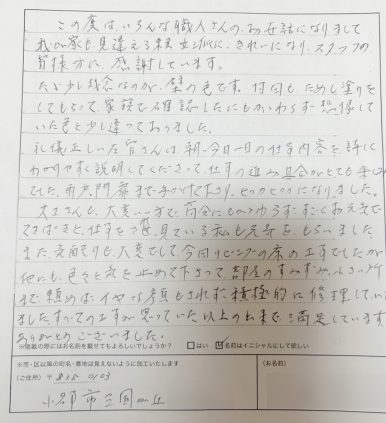 この度は、いろんな職人さんの、お世話になりまして
我が家も見違える程 に、きれいになり、スタッフの
皆様方に、感謝しています。
ただ少し残念なのが、壁の色です。何回も、ためし塗りを
してもらって、家族で確認したにもかかわらず、想像して
いた色と少し違っておりました。
礼儀正しい 皆さんは、朝、今日一日の仕事内容を詳しく
わかりやすく説明してくださって、仕事の進み具合がとても
でした。雨戸、門扉まで ピカピカになりました。
さんも、大変いい方で、 にもかかわらず、すごくお元気で
てきぱきと、仕事を 見ている私も元気を、もらいました。
また、 も、大変でして、今回リビングの床の工事でしたが
他にも、色々と気を止めて下さって、部屋のすみずみ、小さい所
まで、頼めば、イヤな顔もされず、積極的に修理してい
ました。すべての工事が思っていた以上の出来で、満足しています
ありがとうございました。
※掲載の際にはお名前を載せてもよろしいでしょうか? □はい ☑名前はイニシャルにして欲しい
※市・区以降の町名・番地は見えないように加工いたします
(お名前)
(ご住所) 〒838 0103
小郡市三国が丘